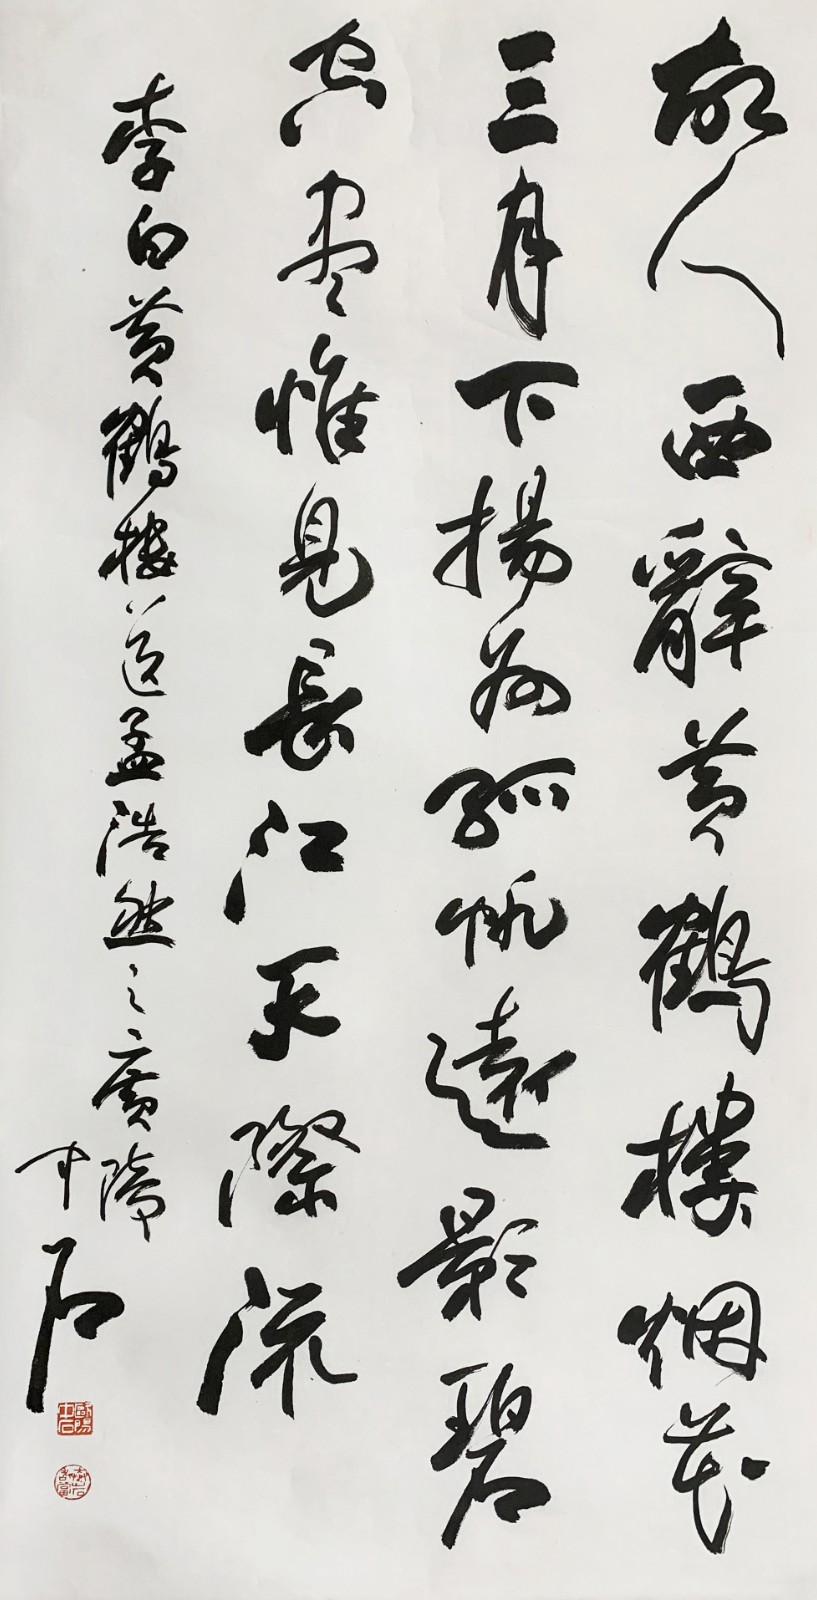 故人西辭黄鶴樓烟花
三月下揚州孤帆遠影碧
空盡惟見長江天際流
李白黄鶴樓送孟浩然之廣陵
中石